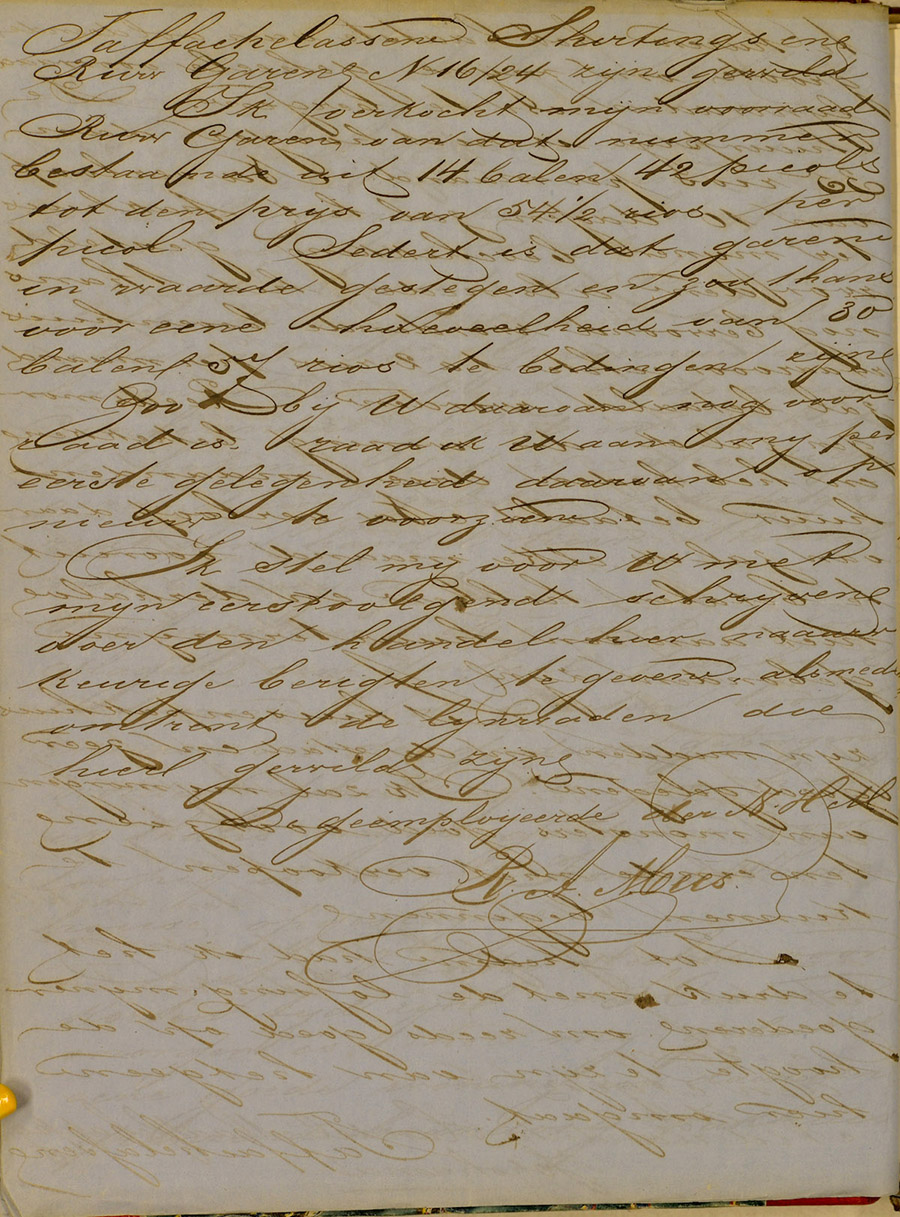 Taffachelassen Shirtings en
Ruw Garen N 16/24 zijn gewild
Ik verkocht mijn voorraad
Ruw Garen van dat nummer
bestaande uit 14 balen 42 picols
tot den prijs van 54.1/2 rios per
picol Sedert is dat garen
in waarde gestegen en zou thans
voor eene hoeveelheid van 30
balen 57 rios te bedingen zijn
Zoo bij U daarvan nog voor
raad is, raad ik U aan my per
eerste gelegenheid daarvan op
nieuw te voorzien.
Ik stel mij voor U met
mijn eerstvolgend schrijven
over den handel hier naauw
keurige berigten te geven, alsmede
omtrent de lijnwaden die
hier gewild zijn
De geëmploijeerde der N. H. M
R. A. Mees.